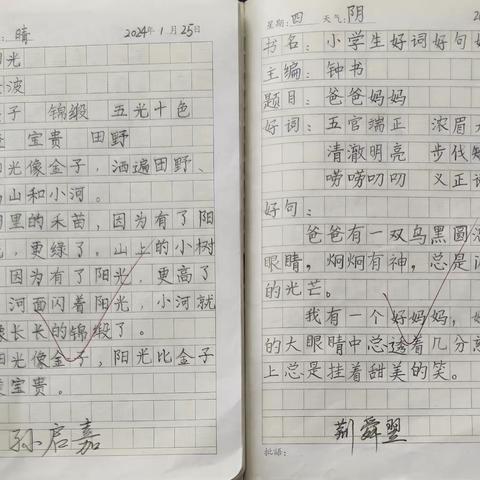 ：晴 2024年1月25日
阳光
波
子 锦缎 五光十色
宝贵 田野
光像金子，洒遍田野、
山和小河。
里的禾苗，因为有了阳
，更绿了。山上的小树
因为有了阳光，更高了
河面闪着阳光，小河就
像长长的锦缎了。
阳光像金子，阳光比金子
宝贵。
孙启嘉
星期：四 天气：阴 20
书名：小学生好词好句好
主编：钟书
题目：爸爸妈妈
好词：五官端正 浓眉大
清澈明亮 步伐矫
唠唠叨叨 义正词
好句：
爸爸有一双乌黑圆
眼睛，炯炯有神，总是
的光芒。
我有一个好妈妈，她
的大眼睛中总透着几分
上总是挂着甜美的笑。
荆舜翌
批语：